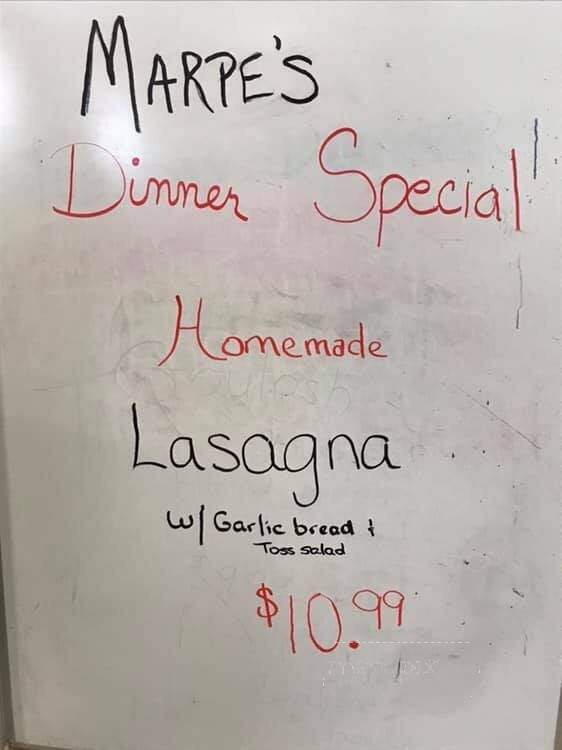 MARPE'S
Dinner Special
Homemade
Lasagna
w/ Garlic bread &
Toss salad
$10.99